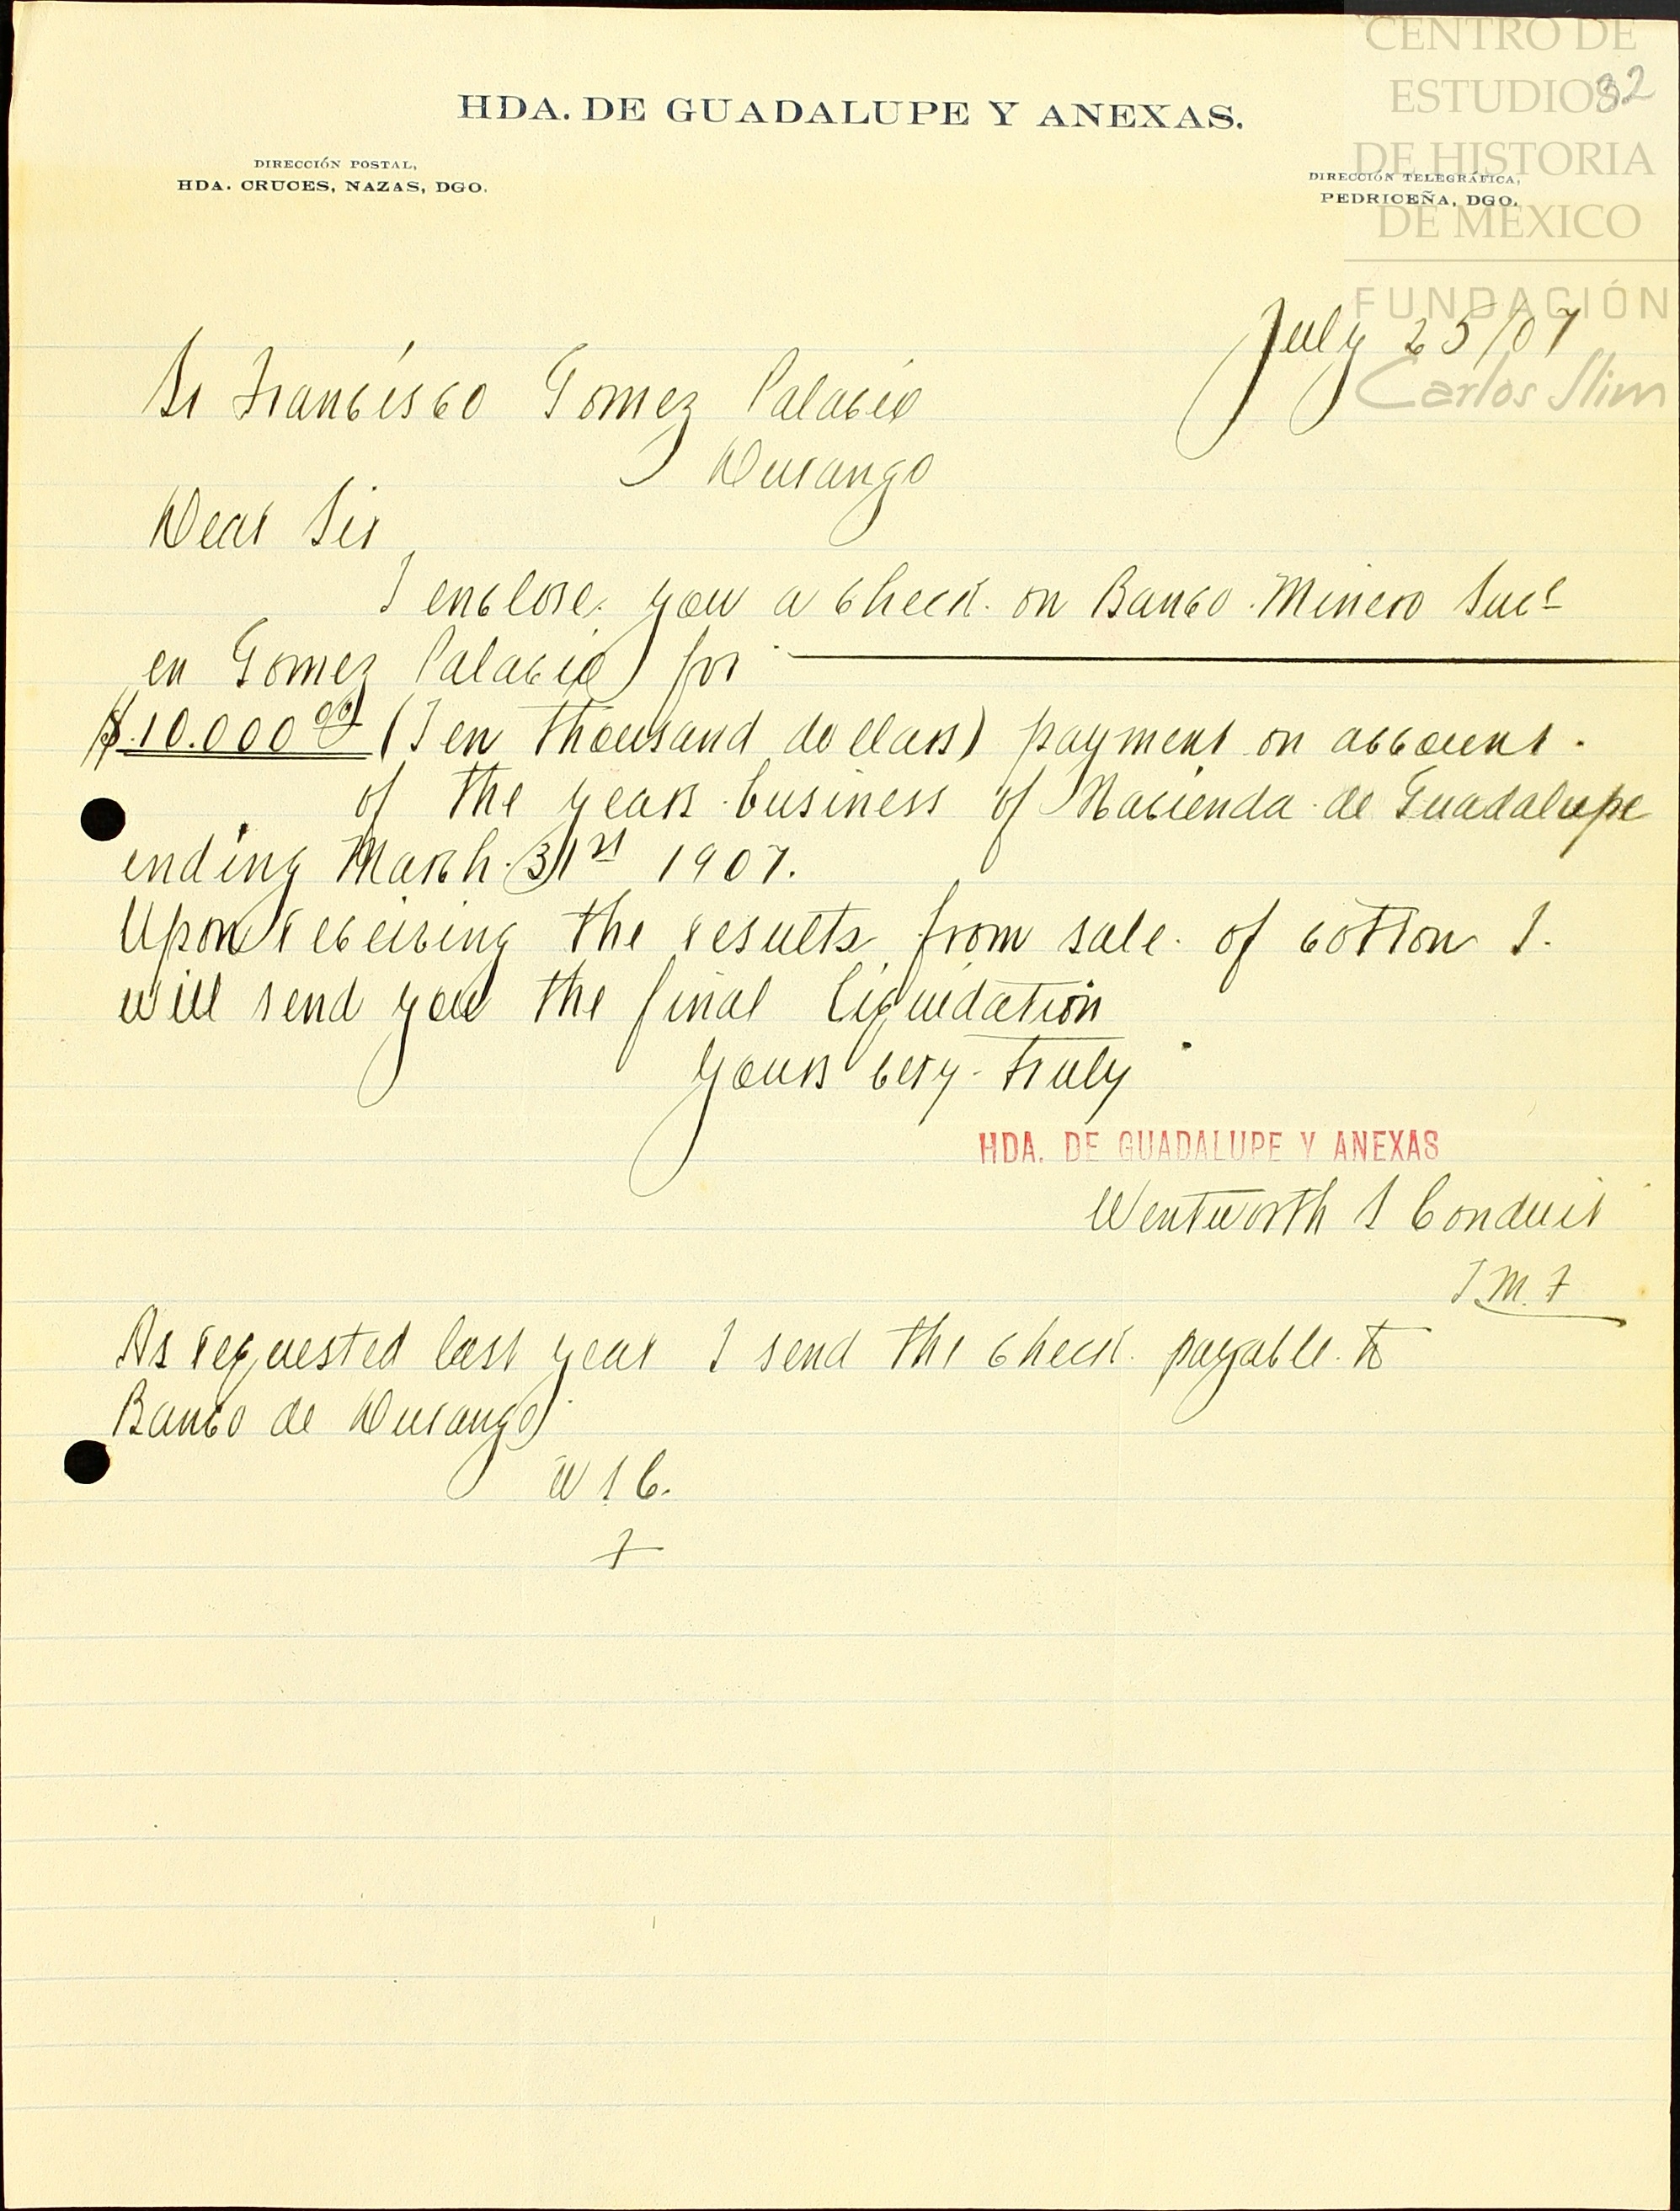 HDA. DE GUADALUPE Y ANEXAS.
DIRECCIÓN POSTAL,
HDA. CRUCES, NAZAS, DGO.
DIRECCIÓN TELEGRÁFICA,
PEDRICEÑA, DGO.
CENTRO DE
ESTUDIOS
32
DE HISTORIA
DE MÉXICO
FUNDACIÓN
Carlos Slim
July 25/07
Sr Francisco Gomez Palacio
Durango
Dear Sir
I enclose you a check on Banco Minero Sucl
en Gomez Palacio for
$10.000 00 (Ten thousand dollars) payment on account.
of the years business of Hacienda de Guadalupe
ending March 31st 1907.
Upon receiving the results from sale of cotton I
will send you the final liquidation
Yours very truly
HDA. DE GUADALUPE Y ANEXAS
Wentworth S Conduit
As requested last year I send the check payable to
Banco de Durango
W S C.